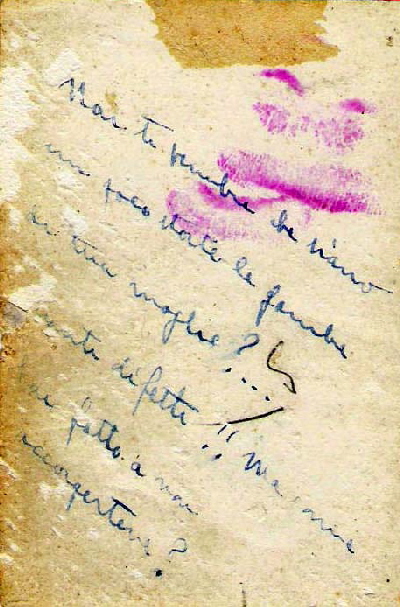 Non ti sembra che siano
un poco storte le gambe
di tua moglie?...
quanti difetti!! Ma come
hai fatto a non
accorgertene?